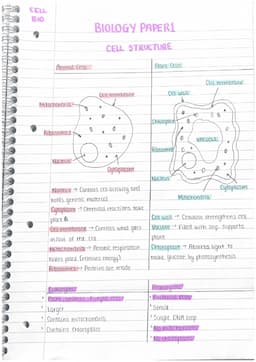 CELL BIO
BIOLOGY PAPER 1
CELL STRUCTURE
Animal Cell
Plant Cell
Cell membrane
Cell wall
Cell membrane
Mitochondria
Chloroplast
Ribosomes
Vacuole
Ribosomes
Nucleus
Cytoplasm
Nucleus
Cytoplasm
Mitochondria
Nucleus → Controls cell activity and
holds genetic material
Cytoplasm → Chemical reactions take
place
Cell membrane → Controls what goes
in/out of the cell
Mitochondria → Aerobic respiration
takes place (releases energy)
Ribosomes → Proteins are made
Cell wall → Cellulose strengthens cell
Vacuole → Filled with sap, supports
plant
Chloroplast → Absorbs light to
make glucose by photosynthesis
Larger
Contains mitochondria
Contains
Small
Single DNA loop
No mitochondria